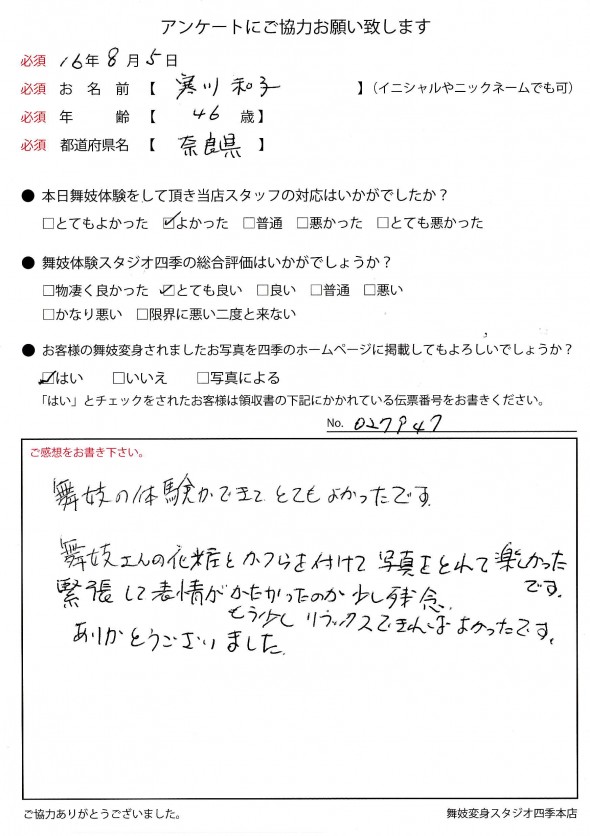 アンケートにご協力お願い致します
必須 16年8月5日
必須 お名前【 寒川 和子 】（イニシャルやニックネームでも可）
必須 年齢【 46 歳】
必須 都道府県名【 奈良県 】
● 本日舞妓体験をして頂き当店スタッフの対応はいかがでしたか？
□とてもよかった ☑よかった □普通 □悪かった □とても悪かった
● 舞妓体験スタジオ四季の総合評価はいかがでしょうか？
□物凄く良かった ☑とても良い □良い □普通 □悪い
□かなり悪い □限界に悪い二度と来ない
● お客様の舞妓変身されましたお写真を四季のホームページに掲載してもよろしいでしょうか？
☑はい □いいえ □写真による
「はい」とチェックをされたお客様は領収書の下記にかかれている伝票番号をお書きください。
No. 027947
ご感想をお書き下さい。
舞妓の体験ができて とてもよかったです.
舞妓さんの花粧とかつらを付けて 写真をとれて楽しかった
です.
緊張して表情がかたかったのが少し残念.
もう少し リラックスできればよかったです.
ありがとうございました.
ご協力ありがとうございました。
舞妓変身スタジオ四季本店